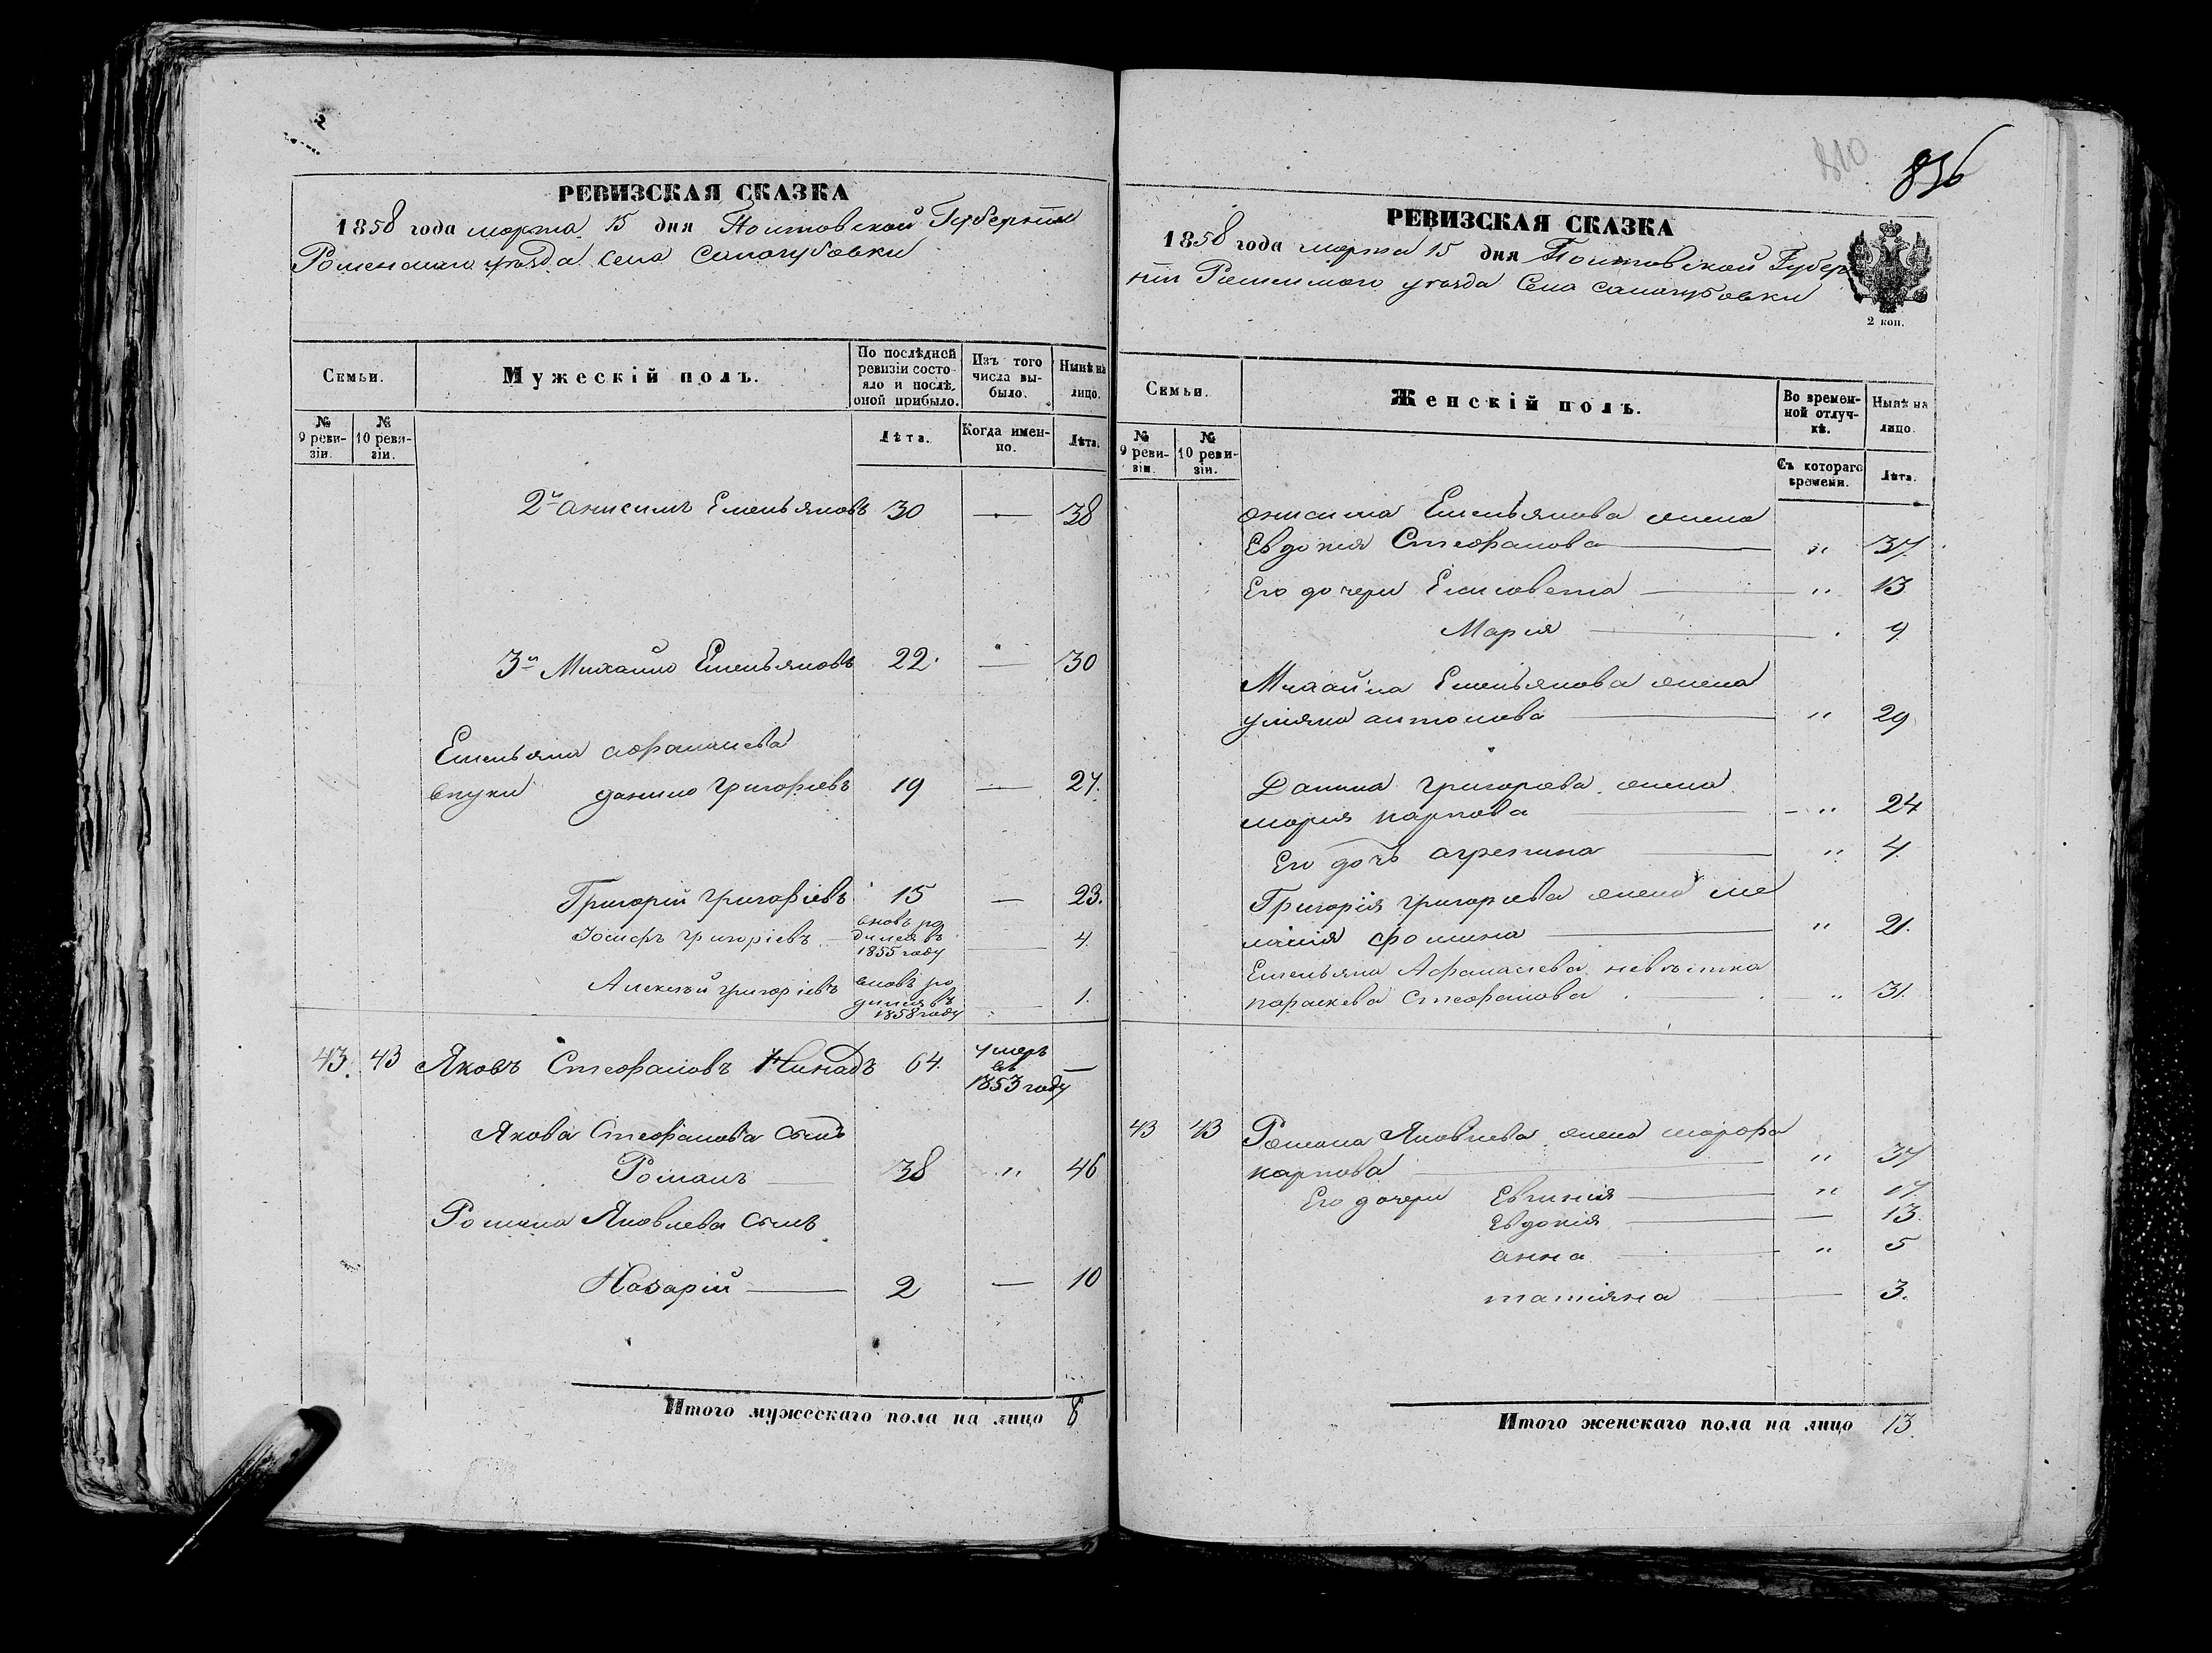 РЕВИЗСКАЯ СКАЗКА
1858 года марта 15 дня Полтовской Губернии
Роменского уезда села Сапогубовки
Семьи.
Мужескій полъ.
По послѣдней ревизіи состояло и послѣ оной прибыло.
Изъ того числа выбыло.
Нынѣ на лицо.
№ 9 ревизіи.
№ 10 ревизіи.
Лѣта.
Когда именно.
Лѣта.
2й Анисимъ Емельяновъ 30 — 38
3й Михайло Емельяновъ 22 — 30
Емельяна Афанасиева
внуки Данило Григориевъ 19 — 27.
Григорій Григориевъ 15 — 23.
Іосифъ Григоріевъ вновь родился въ 1855 году — 4.
Алексей Григоріевъ вновь родился въ 1858 году — 1.
43. 43 Яковъ Стефановъ 64. умеръ въ 1853 году —
Якова Стефанова сынъ
Романъ 38 „ 46
Романа Яковлева сынъ
Назарій 2 — 10
Итого мужескаго пола на лицо 8
810
836
РЕВИЗСКАЯ СКАЗКА
1858 года марта 15 дня Полтовской Губер
нии Роменского уезда Села Сапогубовки
2 коп.
Семьи.
Женскій полъ.
Во временной отлучкѣ.
Нынѣ на лицо.
№ 9 ревизіи.
№ 10 ревизіи.
Съ котораго времени.
Лѣта.
Онисима Емельянова жена
Евдокия Стефанова „ 37.
Его дочери Елисовета „ 13
Мария 9
Михайла Емельянова жена
Улияна Антонова „ 29
Данила Григориева жена
Мария Карпова „ 24
Его дочь Агрепина „ 4.
Григорія Григориева жена Ме
ланія Фомина „ 21.
Емельяна Афанасиева невѣстка
Параскева Стефанова „ 31.
43 43 Романа Яковлева жена Марфа
Карпова „ 37
Его дочери Евгинія „ 17.
Евдокія — 13.
Анна „ 5
Татіяна — 3.
Итого женскаго пола на лицо 13.